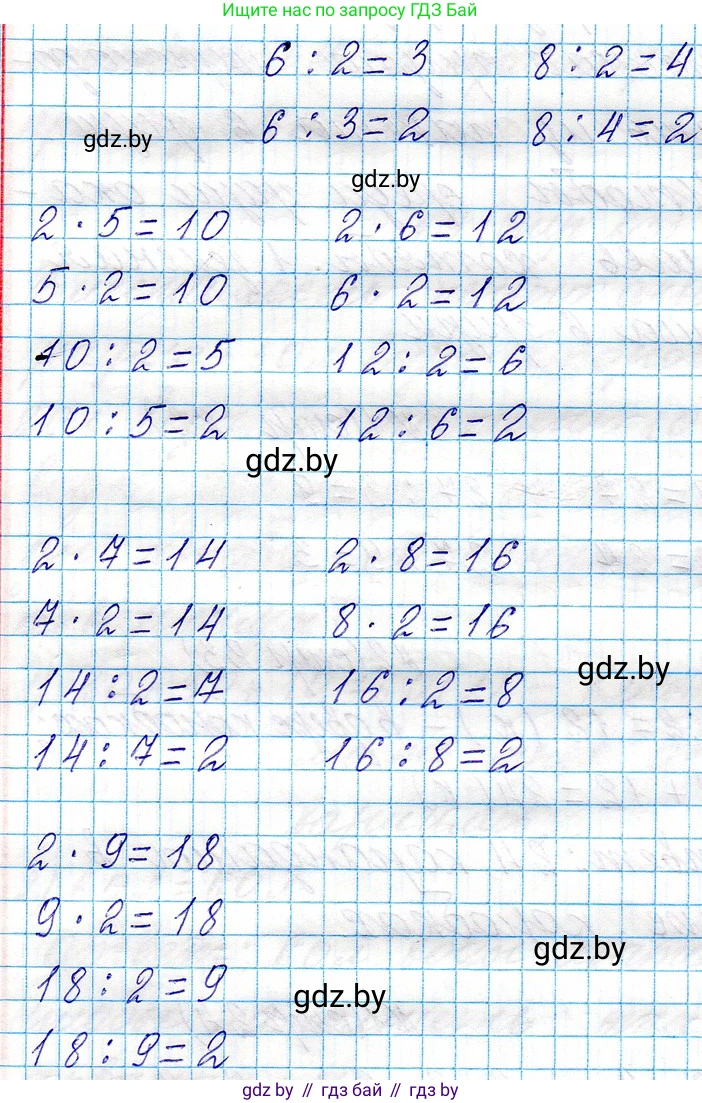 Ищите нас по запросу ГДЗ Бай
6 : 2 = 3 8 : 2 = 4
6 : 3 = 2 8 : 4 = 2
gdz.by
gdz.by
2 · 5 = 10 2 · 6 = 12
5 · 2 = 10 6 · 2 = 12
10 : 2 = 5 12 : 2 = 6
10 : 5 = 2 12 : 6 = 2
gdz.by
2 · 7 = 14 2 · 8 = 16
7 · 2 = 14 8 · 2 = 16
gdz.by
14 : 2 = 7 16 : 2 = 8
14 : 7 = 2 16 : 8 = 2
2 · 9 = 18
9 · 2 = 18
gdz.by
18 : 2 = 9
gdz.by
18 : 9 = 2
gdz by // гдз бай // гдз by